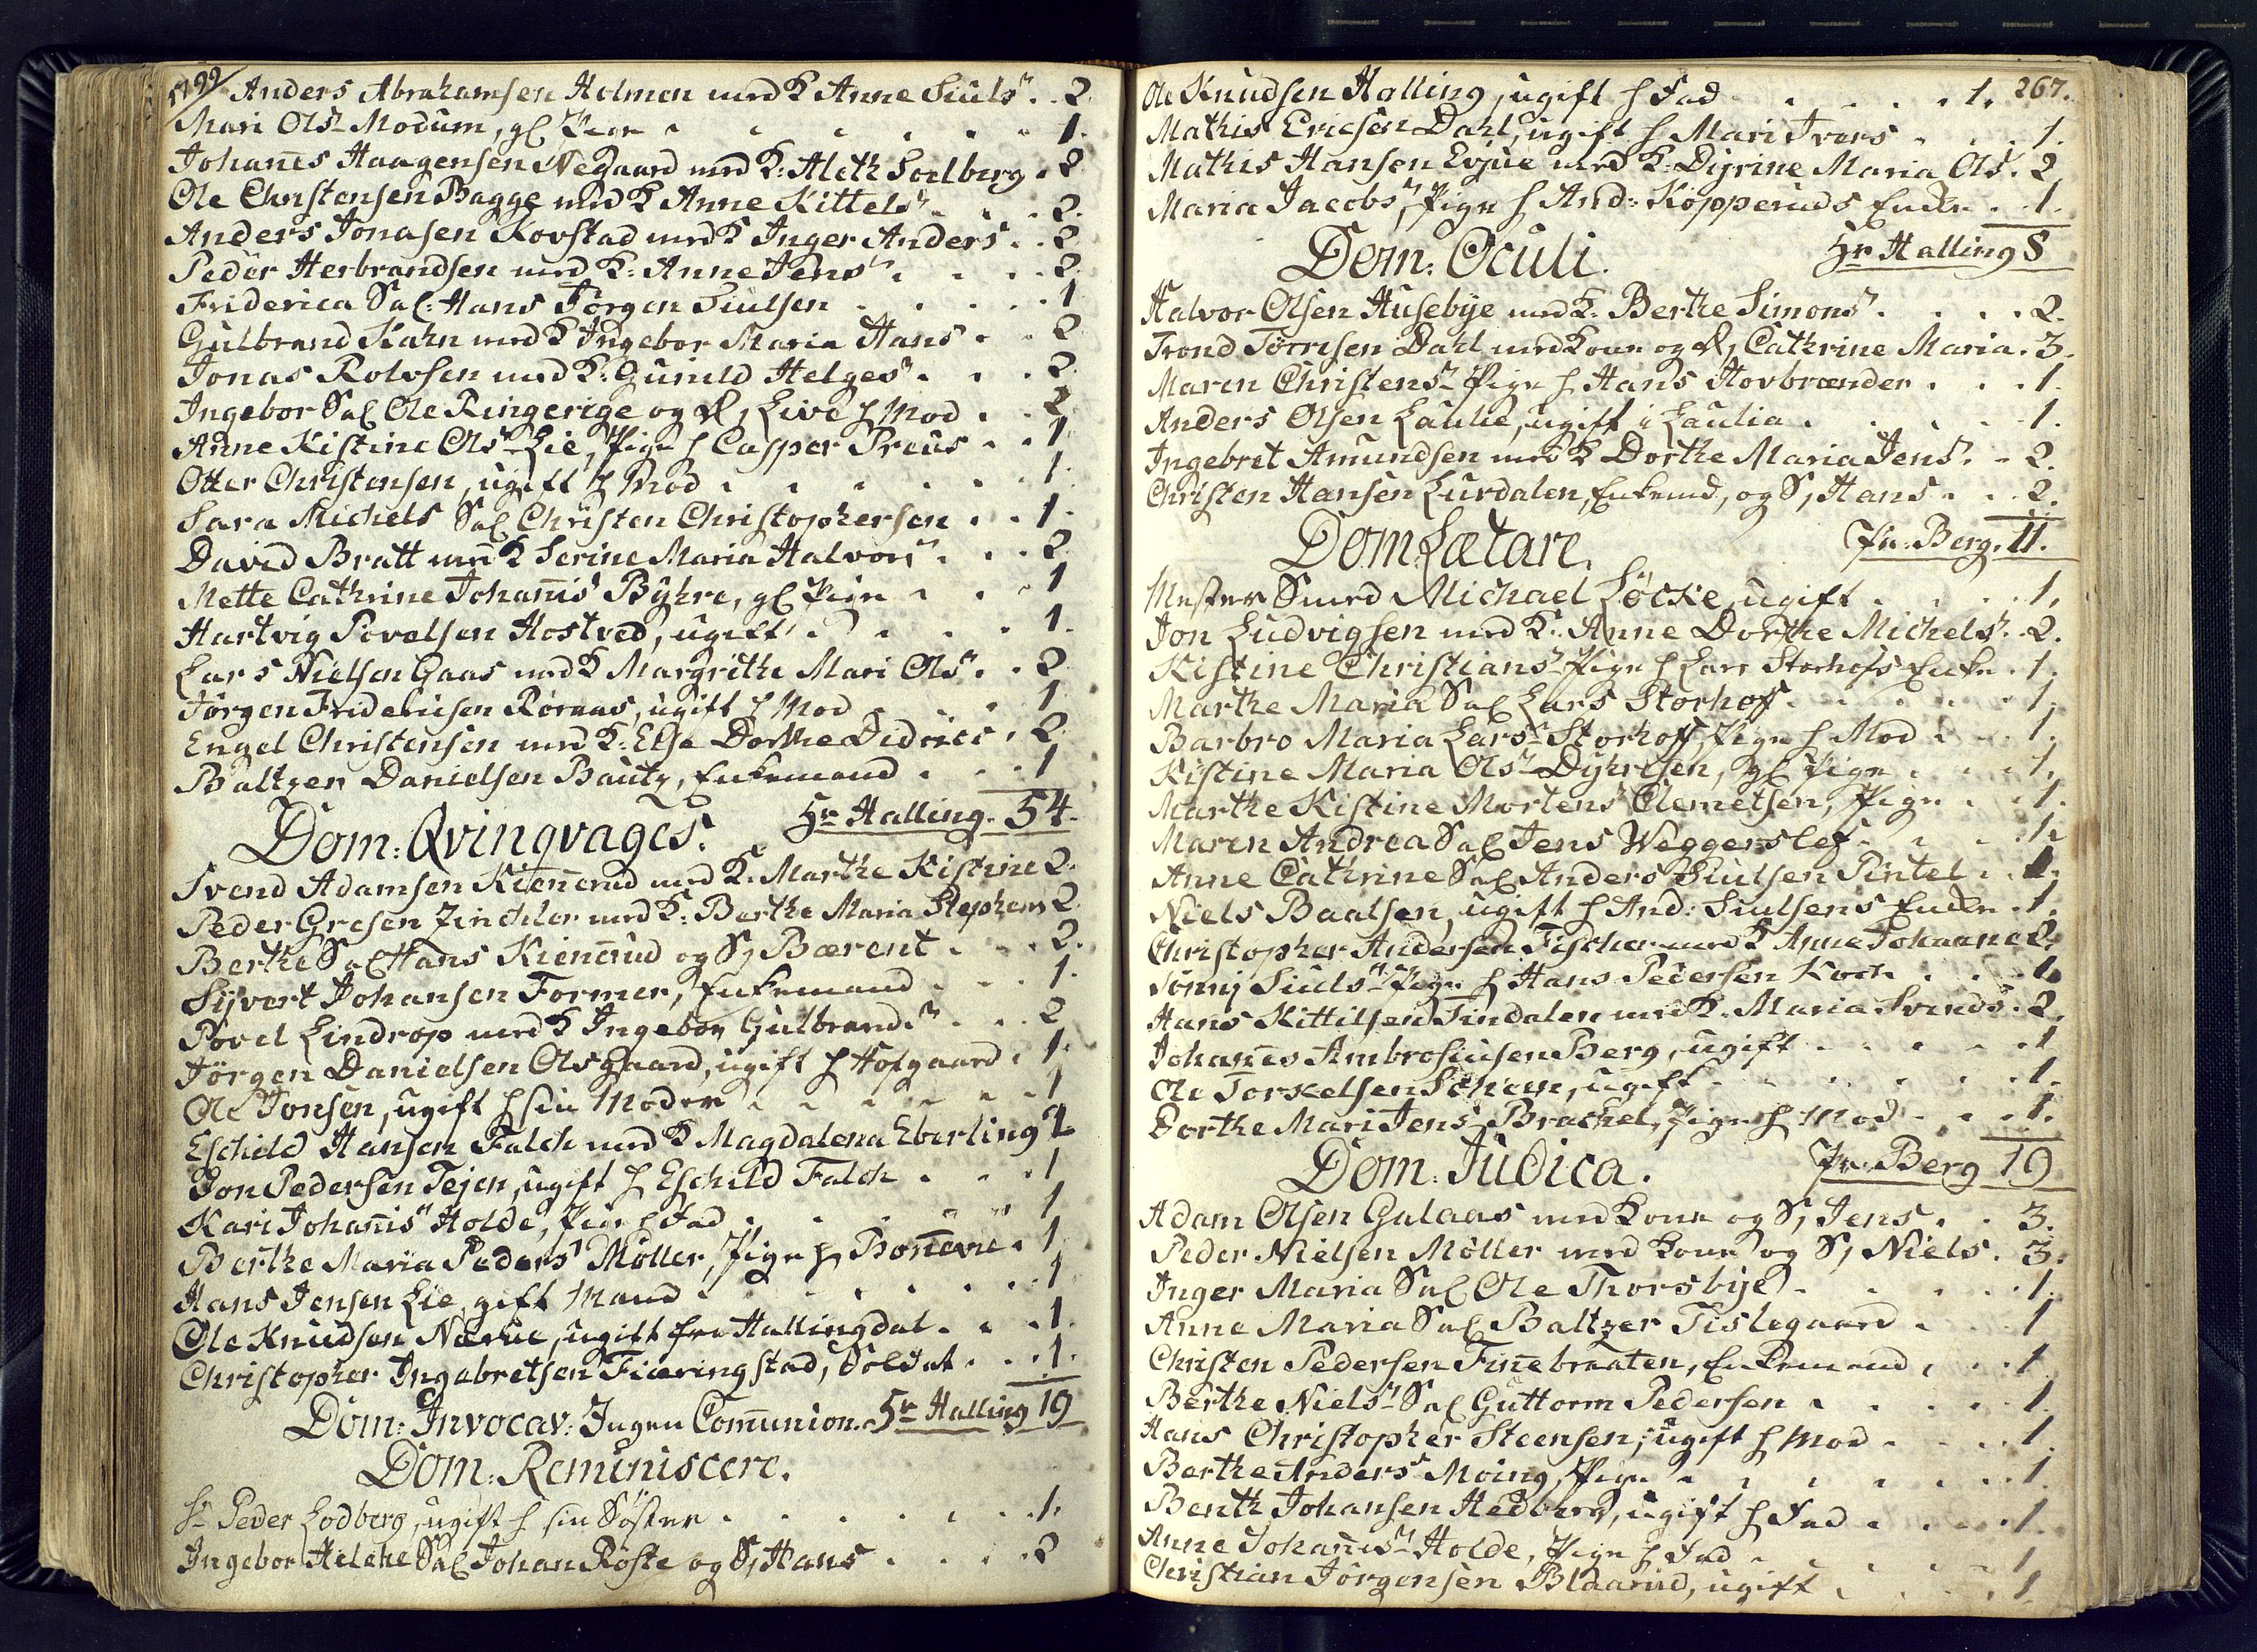 1799
Anders Abrahamsen Holmen med K Anne Siuls . . 2.
Mari Ols Modum, gl Pige . . . 1.
Johañes Haagensen Nedgaard med K: Aleth Soelberg . 2
Ole Christensen Bagge med K Anne Kittels . . . 2.
Anders Jonasen Kovstad med K Inger Anders . . 2
Peder Herbrandsen med K: Anne Jens . . . . 2.
Friderica Sal: Hans Jörgen Siulsen . . . . . 1
Gulbrand Kahn med K Ingebor Maria Hans . . 2
Jonas Rolvsen med K: Gunild Helges . . . 2.
Ingebor Sal Ole Ringerige og D, Live h Mod . . 2
Anne Kistine Ols Lie, Pige h Casper Preus . . 1
Otter Christensen, ugift h Mod . . . . . 1.
Sara Michels Sal Christen Christophersen . . 1.
David Bratt med K Serine Maria Halvors . . . 2
Mette Cathrine Johañis Byhre, gl Pige . . . 1
Hartvig Povelsen Hostved, ugift . . . . 1.
Lars Nielsen Gaas med K Margrethe Mari Ols . . 2
Jörgen Fridericsen Röraas, ugift h Mod . . . 1
Engel Christensen med K: Else Dorthe Didrics . 2
Baltzer Danielsen Bautz, Enkemand . . . 1
Hr Halling. 54.
Dom: Qvinqvages.
Svend Adamsen Kieñerud med K. Marthe Kistine 2.
Peder Gresen Zinchler med K: Berthe Maria Stephens 2
Berthe Sal Hans Kieñerud og S, Bærent . . . 2.
Syvert Johansen Former, Enkemand . . . 1.
Povel Lindrop med K Ingebor Gulbrands . . . 2
Jörgen Danielsen Olsgaard, ugift h Hofgaard . 1.
Ole Jonsen, ugift h sin Moder . . . . . 1
Eschild Hansen Falch med K Magdalena Eberling 2
Jon Pedersen Tejen, ugift h Eschild Falch . . . 1
Kari Johañis Holde, Pige h Fad . . . . . 1
Berthe Maria Peders Möller, Pige h Boñevie . 1
Hans Jensen Lie, gift Mand . . . . . . 1
Ole Knudsen Nærue, ugift fra Hallingdal . . . 1.
Christopher Ingebretsen Fiæringstad, Soldat . . . 1.
Dom: Invocav: Ingen Com̃union. Hr Halling 19
Dom: Reminiscere.
Sr Peder Lodberg, ugift h sin Söster . . . . . 1.
Ingebor Helche Sal Johan Röste og S, Hans . . . . 2
267.
Ole Knudsen Halling, ugift h Fad . . . . . 1.
Mathis Ericsen Dahl, ugift h Mari Ivers . . . . 1.
Mathis Hansen Evjue med K. Dyrine Maria Ols. 2
Maria Jacobs, Pige h And: Köpperuds Enke . . 1.
Hr Halling 8
Dom: Oculi.
Halvor Olsen Husebye med K. Berthe Simons . . . . 2.
Trond Törresen Dahl med Kone og D, Cathrine Maria. 3.
Maren Christens Pige h Hans Hovbrænder . . . 1.
Anders Olsen Laulie, ugift i Laulia . . . . 1.
Ingebret Amundsen med K Dorthe Maria Jens. . 2.
Christen Hansen Lurdalen, Enkemd, og S, Hans . . . 2.
Pr: Berg. 11.
Dom Lætare.
Mester Smed Michael Löcke, ugift . . . . 1.
Jon Ludvigsen med K: Anne Dorthe Michels . 2.
Kistine Christians Pige h Lars Storhofs Enke . 1.
Marthe Maria Sal Lars Storhof . . . . . 1.
Barbro Maria Lars Storhoff, Pige h Mod . . . 1.
Kistine Maria Ols Dyhresen, gl Pige . . . . 1.
Marthe Kistine Mortens Clemetsen, Pige . . . 1.
Maren Andrea Sal Jens Weggerslef . . . . 1.
Anne Cathrine Sal Anders Siulsen Pintel . . 1.
Niels Baalsen, ugift h And: Siulsens Enke . 1.
Christopher Andersen Fischer med K Anne Johanne 2.
Siuls Pige h Hans Pedersen Koch . . . 1.
Hans Kittilsen Tindalen med K. Maria Svends . 2.
Johañes Ambrosiusen Berg, ugift . . . . . 1
Ole Torkelsen Scheen, ugift . . . . . . 1.
Dorthe Mari Jens Brachel, Pige h Mod . . . 1.
Pr: Berg 19
Dom: Judica.
Adam Olsen Gulaas med Kone og S, Jens . . 3.
Peder Nielsen Möller med Kone og S, Niels . 3.
Inger Maria Sal Ole Thorsbye . . . . . 1.
Anne Maria Sal Baltzer Tislegaard . . . 1
Christen Pedersen Fiñebraaten, Enkemand . . . 1
Berthe Niels Sal Guttorm Pedersen . . . . 1.
Hans Christopher Steensen, ugift h Mod . . . . 1.
Berthe Anders Moing, Pige . . . . . . 1
Benth Johansen Hedberg, ugift h Fad . . . . 1.
Anne Johañis Holde, Pige h Fad . . . . . 1
Christian Jörgensen Blaarud, ugift . . . . 1